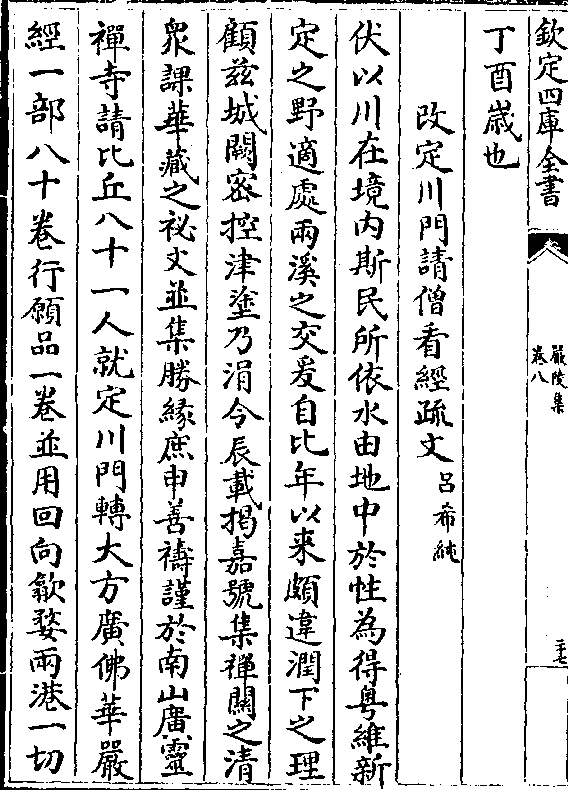 欽定四庫全書
嚴陵集
卷八
二十七
丁酉嵗也
改定川門請僧看經疏文 呂希純
伏以川在境内斯民所依水由地中於性為得粤維新
定之野適處兩溪之交爰自比年以来頗違潤下之理
顧兹城闕密控津塗乃涓令辰載掲嘉號集禪關之清
衆課華藏之祕文並集勝緣庶申善禱謹於南山廣靈
禪寺請比丘八十一人就定川門轉大方廣佛華嚴
經一部八十卷行願品一卷並用回向歙婺兩港一切